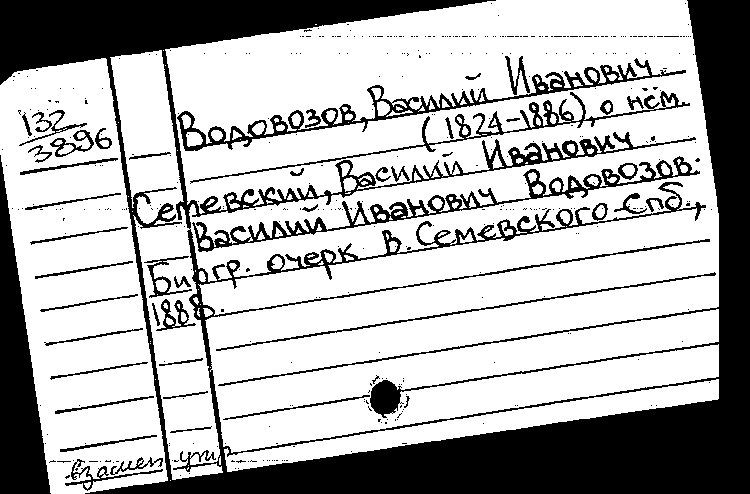 132
3896
Водовозов, Василий Иванович
(1824-1886), о нём.
Семевский, Василий Иванович.
Василий Иванович Водовозов.
Биогр. очерк В. Семевского. - Спб.,
1888.
взамен утр.